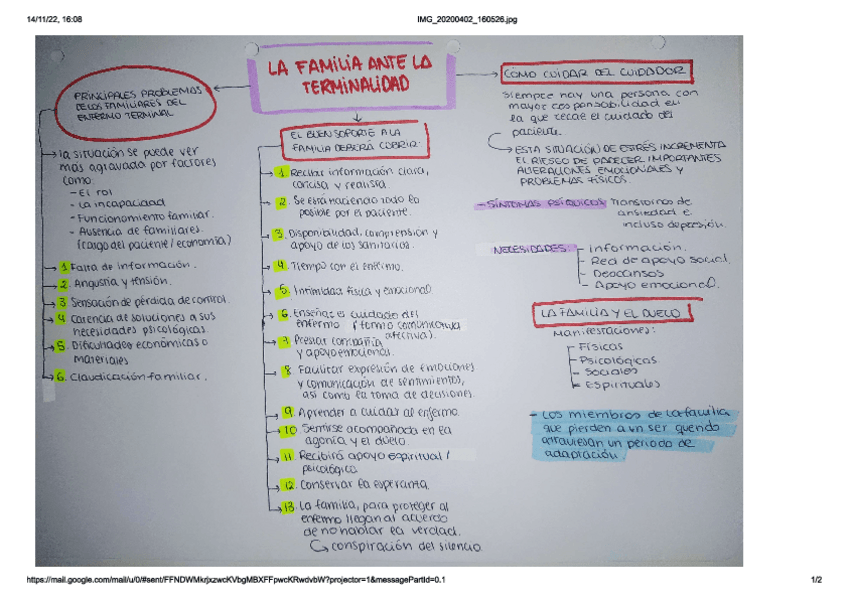 14/11/22, 16:08
IMG_20200402_160526.jpg
LA FAMILIA ANTE LA
TERMINALIDAD
PRINCIPALES PROBLEMAS
DE LOS FAMILIARES DEL
ENFERMO TERMINAL
la situación se puede ver
más agravada por factores
como:
- El rol
- La incapacidad
- Funcionamiento familiar.
- Ausencia de familiares.
(cargo del paciente / economía)
1. Falta de información.
2. Angustia y tensión.
3. Sensación de pérdida de control.
4. Carencia de soluciones a sus
necesidades psicológicas.
5. Dificultades económicas o
materiales
6. Claudicación familiar.
EL BUEN SOPORTE A LA
FAMILIA DEBERÁ CUBRIR:
1. Recibir información clara,
concisa y realista.
2. Se está haciendo todo lo
posible por el paciente.
3. Disponibilidad, comprensión y
apoyo de los sanitarios.
4. Tiempo con el enfermo.
5. Intimidad física y emocional
6. Enseñar el cuidado del
enfermo (tanto comunicativa
afectiva).
7. Prestar compañía
y apoyo emocional.
8. Facilitar expresión de emociones
y comunicación de sentimientos,
así como la toma de decisiones.
9. Aprender a cuidar al enfermo.
10. Sentirse acompañada en la
agonía y el duelo.
11. Recibirá apoyo espiritual /
psicológico
12. Conservar la esperanza.
13. La familia, para proteger al
enfermo llegan al acuerdo
de no hablar la verdad.
conspiración del silencio
COMO CUIDAR DEL CUIDADOR
Siempre hay una persona con
mayor responsabilidad en
la que recae el cuidado del
paciente.
ESTA SITUACIÓN DE ESTRÉS INCREMENTA
EL RIESGO DE PADECER IMPORTANTES
ALTERACIONES EMOCIONALES Y
PROBLEMAS FÍSICOS.
- SÍNTOMAS PSÍQUICOS: Transtornos de
ansiedad e
incluso depresión.
NECESIDADES:
- Información.
- Red de apoyo social.
- Descansos
- Apoyo emocional.
LA FAMILIA Y EL DUELO
Manifestaciones:
- Físicas
- Psicológicas
- Sociales
- Espirituales
- Los miembros de la familia
que pierden a un ser querido
atraviesan un periodo de
adaptación.
https://mail.google.com/mail/u/0/#sent/FFNDWMkrjxzwcKVbgMBXFFpwcKRwdvbW?projector=1&messagePartId=0.1
1/2